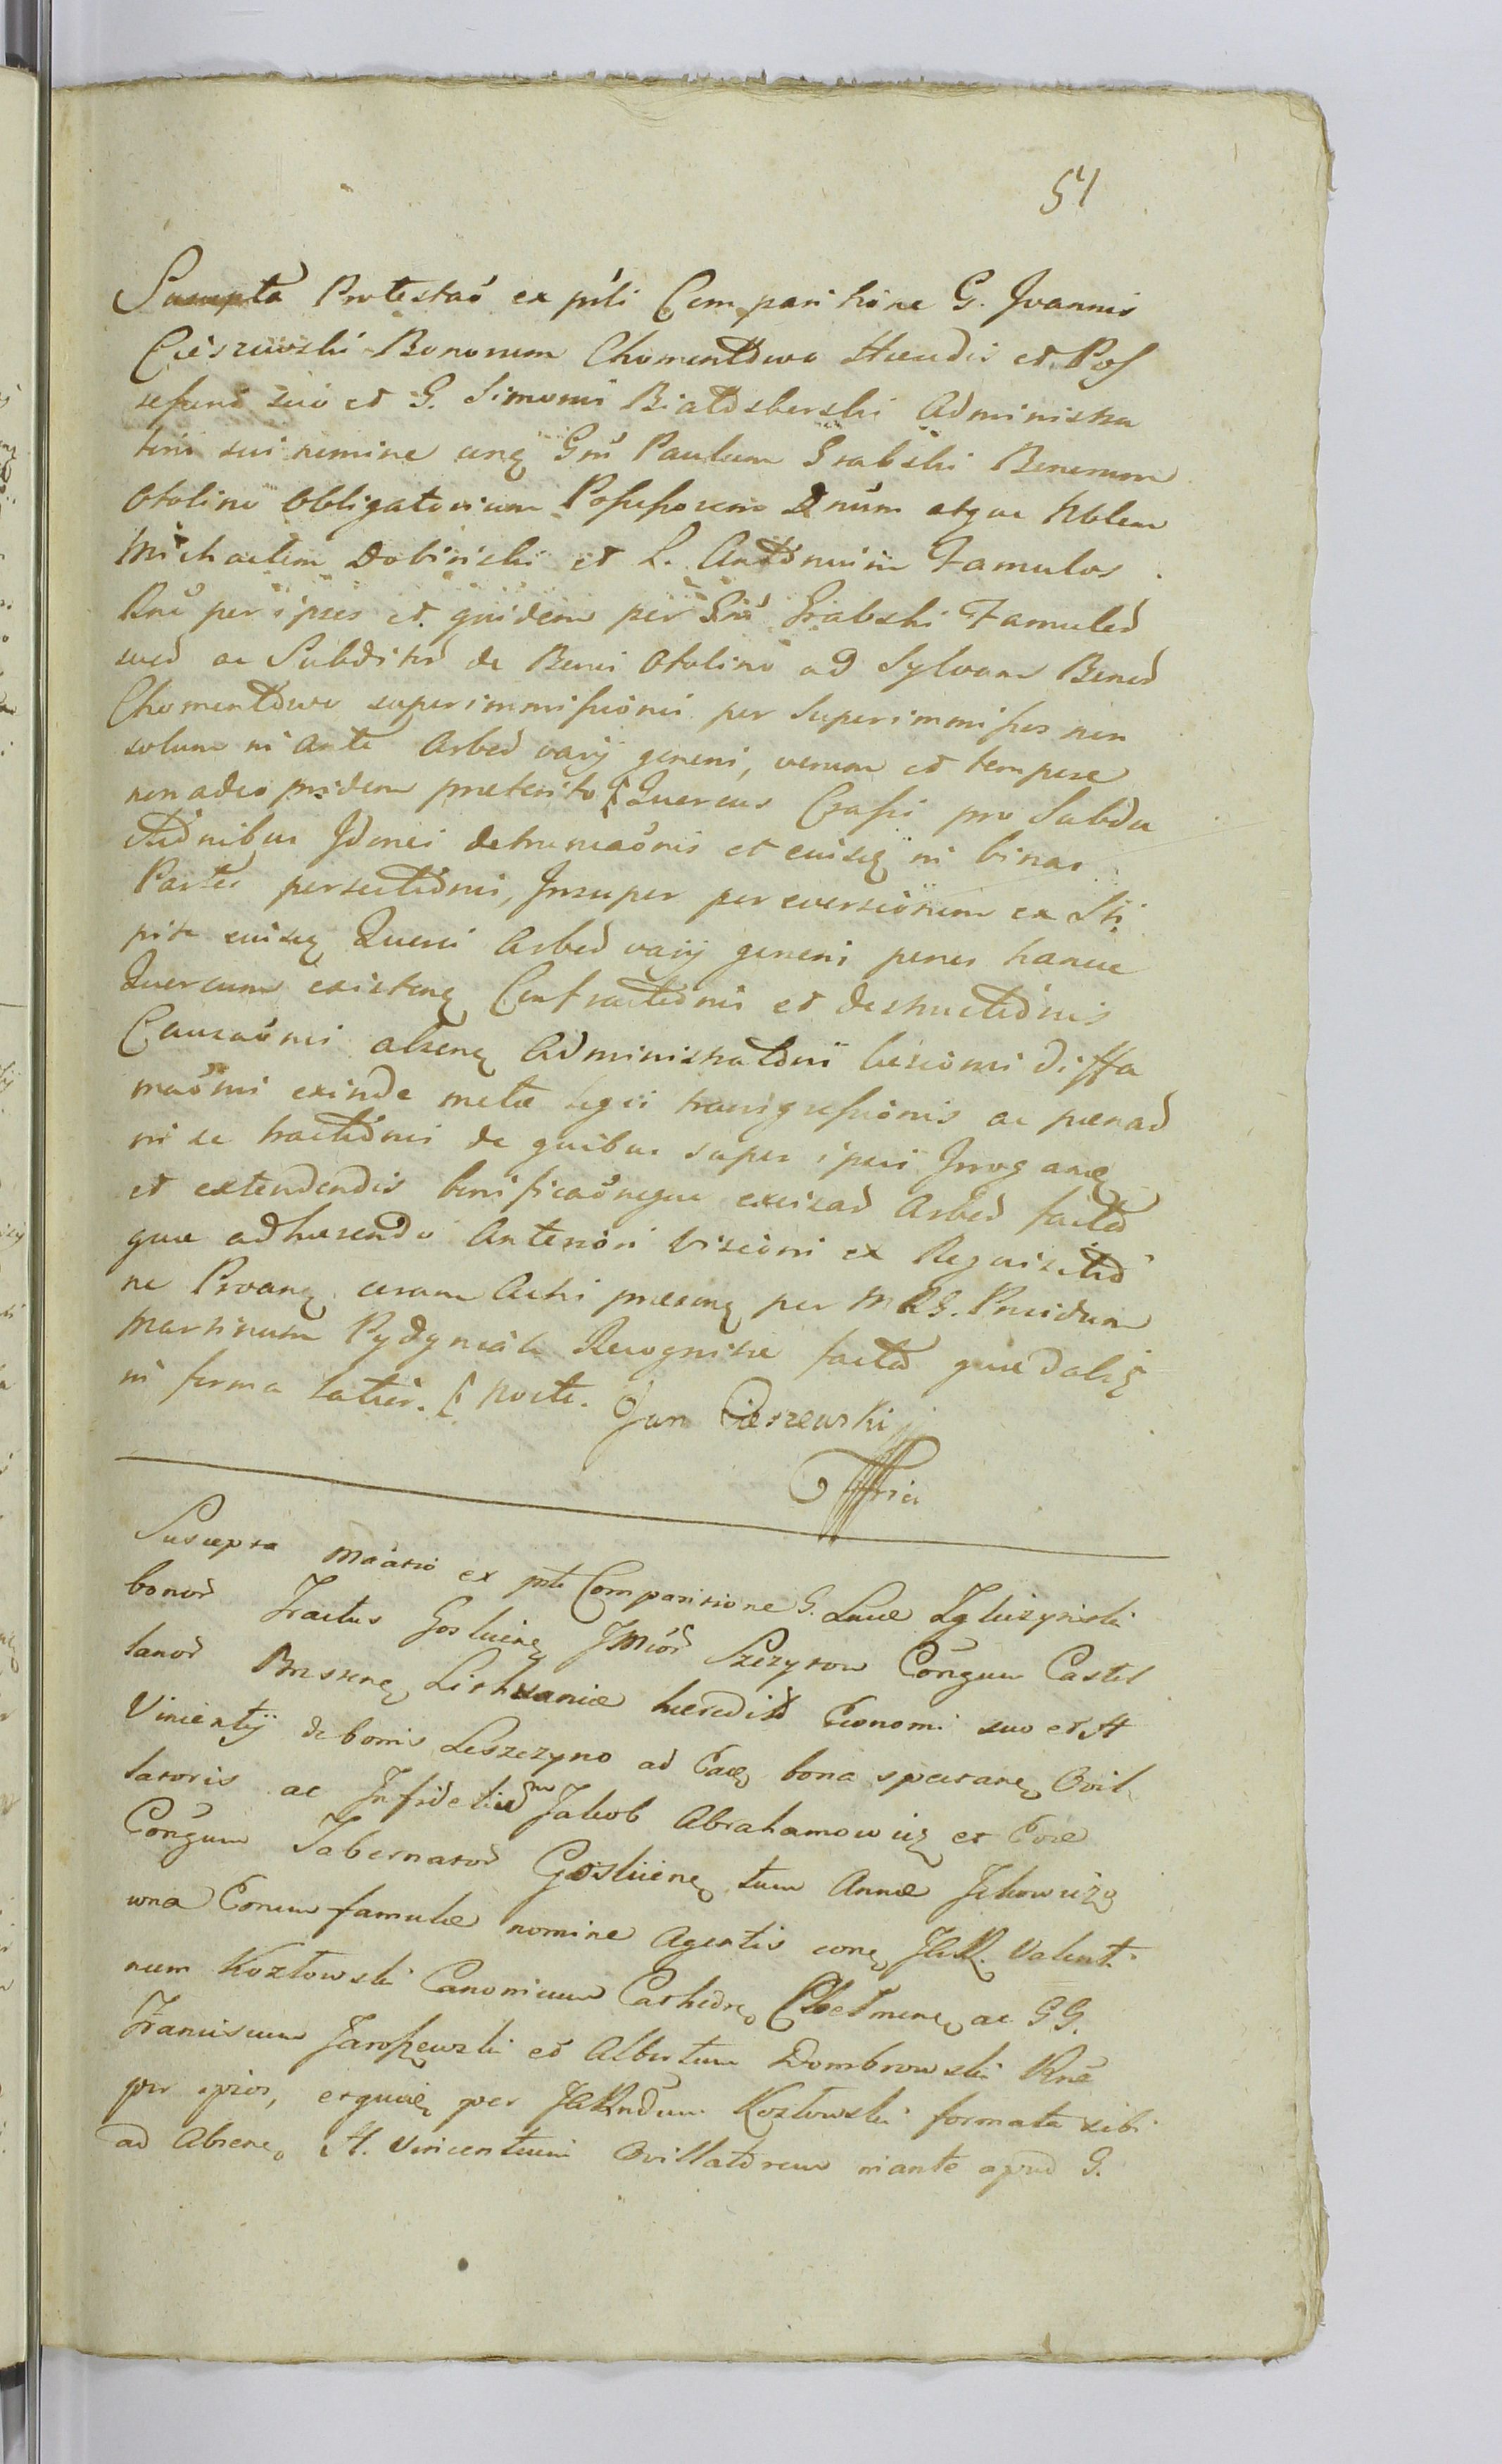 51
Suscepta Protestaõ ex pñti Comparitione G. Joannis
Cieszewski Bonorum Chomentowo Hæredis et Pos
sessoris suo et G. Simonis Białoskorski Administra
toris sui nomine cong Gñu Paulum Grabski Bonorum
Otolino Obligatorium Possessorem Dnum atque Nblem
Michaelem Dobinski et L. Antonium Famulos
Rnê per ipsos et quidem per Gnu Grabski Famulos
suos ac Subditos de Bonis Otolino ad Sylvam Bonor
Chomentowo superimmissionis per Superimmissos non
solum in ante Arbor varij generis, verum et tempore
non adeo pridem præterito Quercus Crassi pro Subdu
ctionibus Idonei detruncaõnis et eiusq in binas
Partes persectionis, Insuper per eversionem ex Sti
pite eiusq Querci Arbor varij generis penes hance
Quercum existeng Confractionis et destructionis
Causaõnis absenq Administratoris læsionis diffa
maõnis exinde metæ legis transgressionis ac pænar
in se tractionis de quibus super ipsis Irrogandæ
et extendendis benificaõneque excisar Arbor factâ
quæ adhærendo Anteriori Visioni ex Requisitio
ne Provanq coram Actis præsenq per MRG. Præsidem
Martinum Pydynciak Recognitæ facta quæ dabiq
in forma latiori. nocte.
Jan Cieszewski
Suscepta Mãatio ex pnti Comparitione G. Lucæ Zgliczynski
bonor Tractus Gosliciene JMior Szczytow Conguum Castel
lanor Brzescieng Lithvaniæ hæredior Economi suo et H
Vincentij de bonis Leszczyno ad Eaeq bona spectaneq Ovil
latoris ac Infideliu Jakob Abrahamowicz et Evæ
Conguum Tabernator Gosliceneq tum Annæ Jckowicz
wna Eorum famulæ nomine Agentis cong JllR. Valenti
num Kozłowski Canonicum Cathedr Chełmineq ac GG.
Franciscum Jaroszewski et Albertum Dombrowski Rnê
per ipsos, et quidem per JllRndum Kozłowski formata sibi
ad Absene H. Vincentium Ovillatorem in ante apud G.